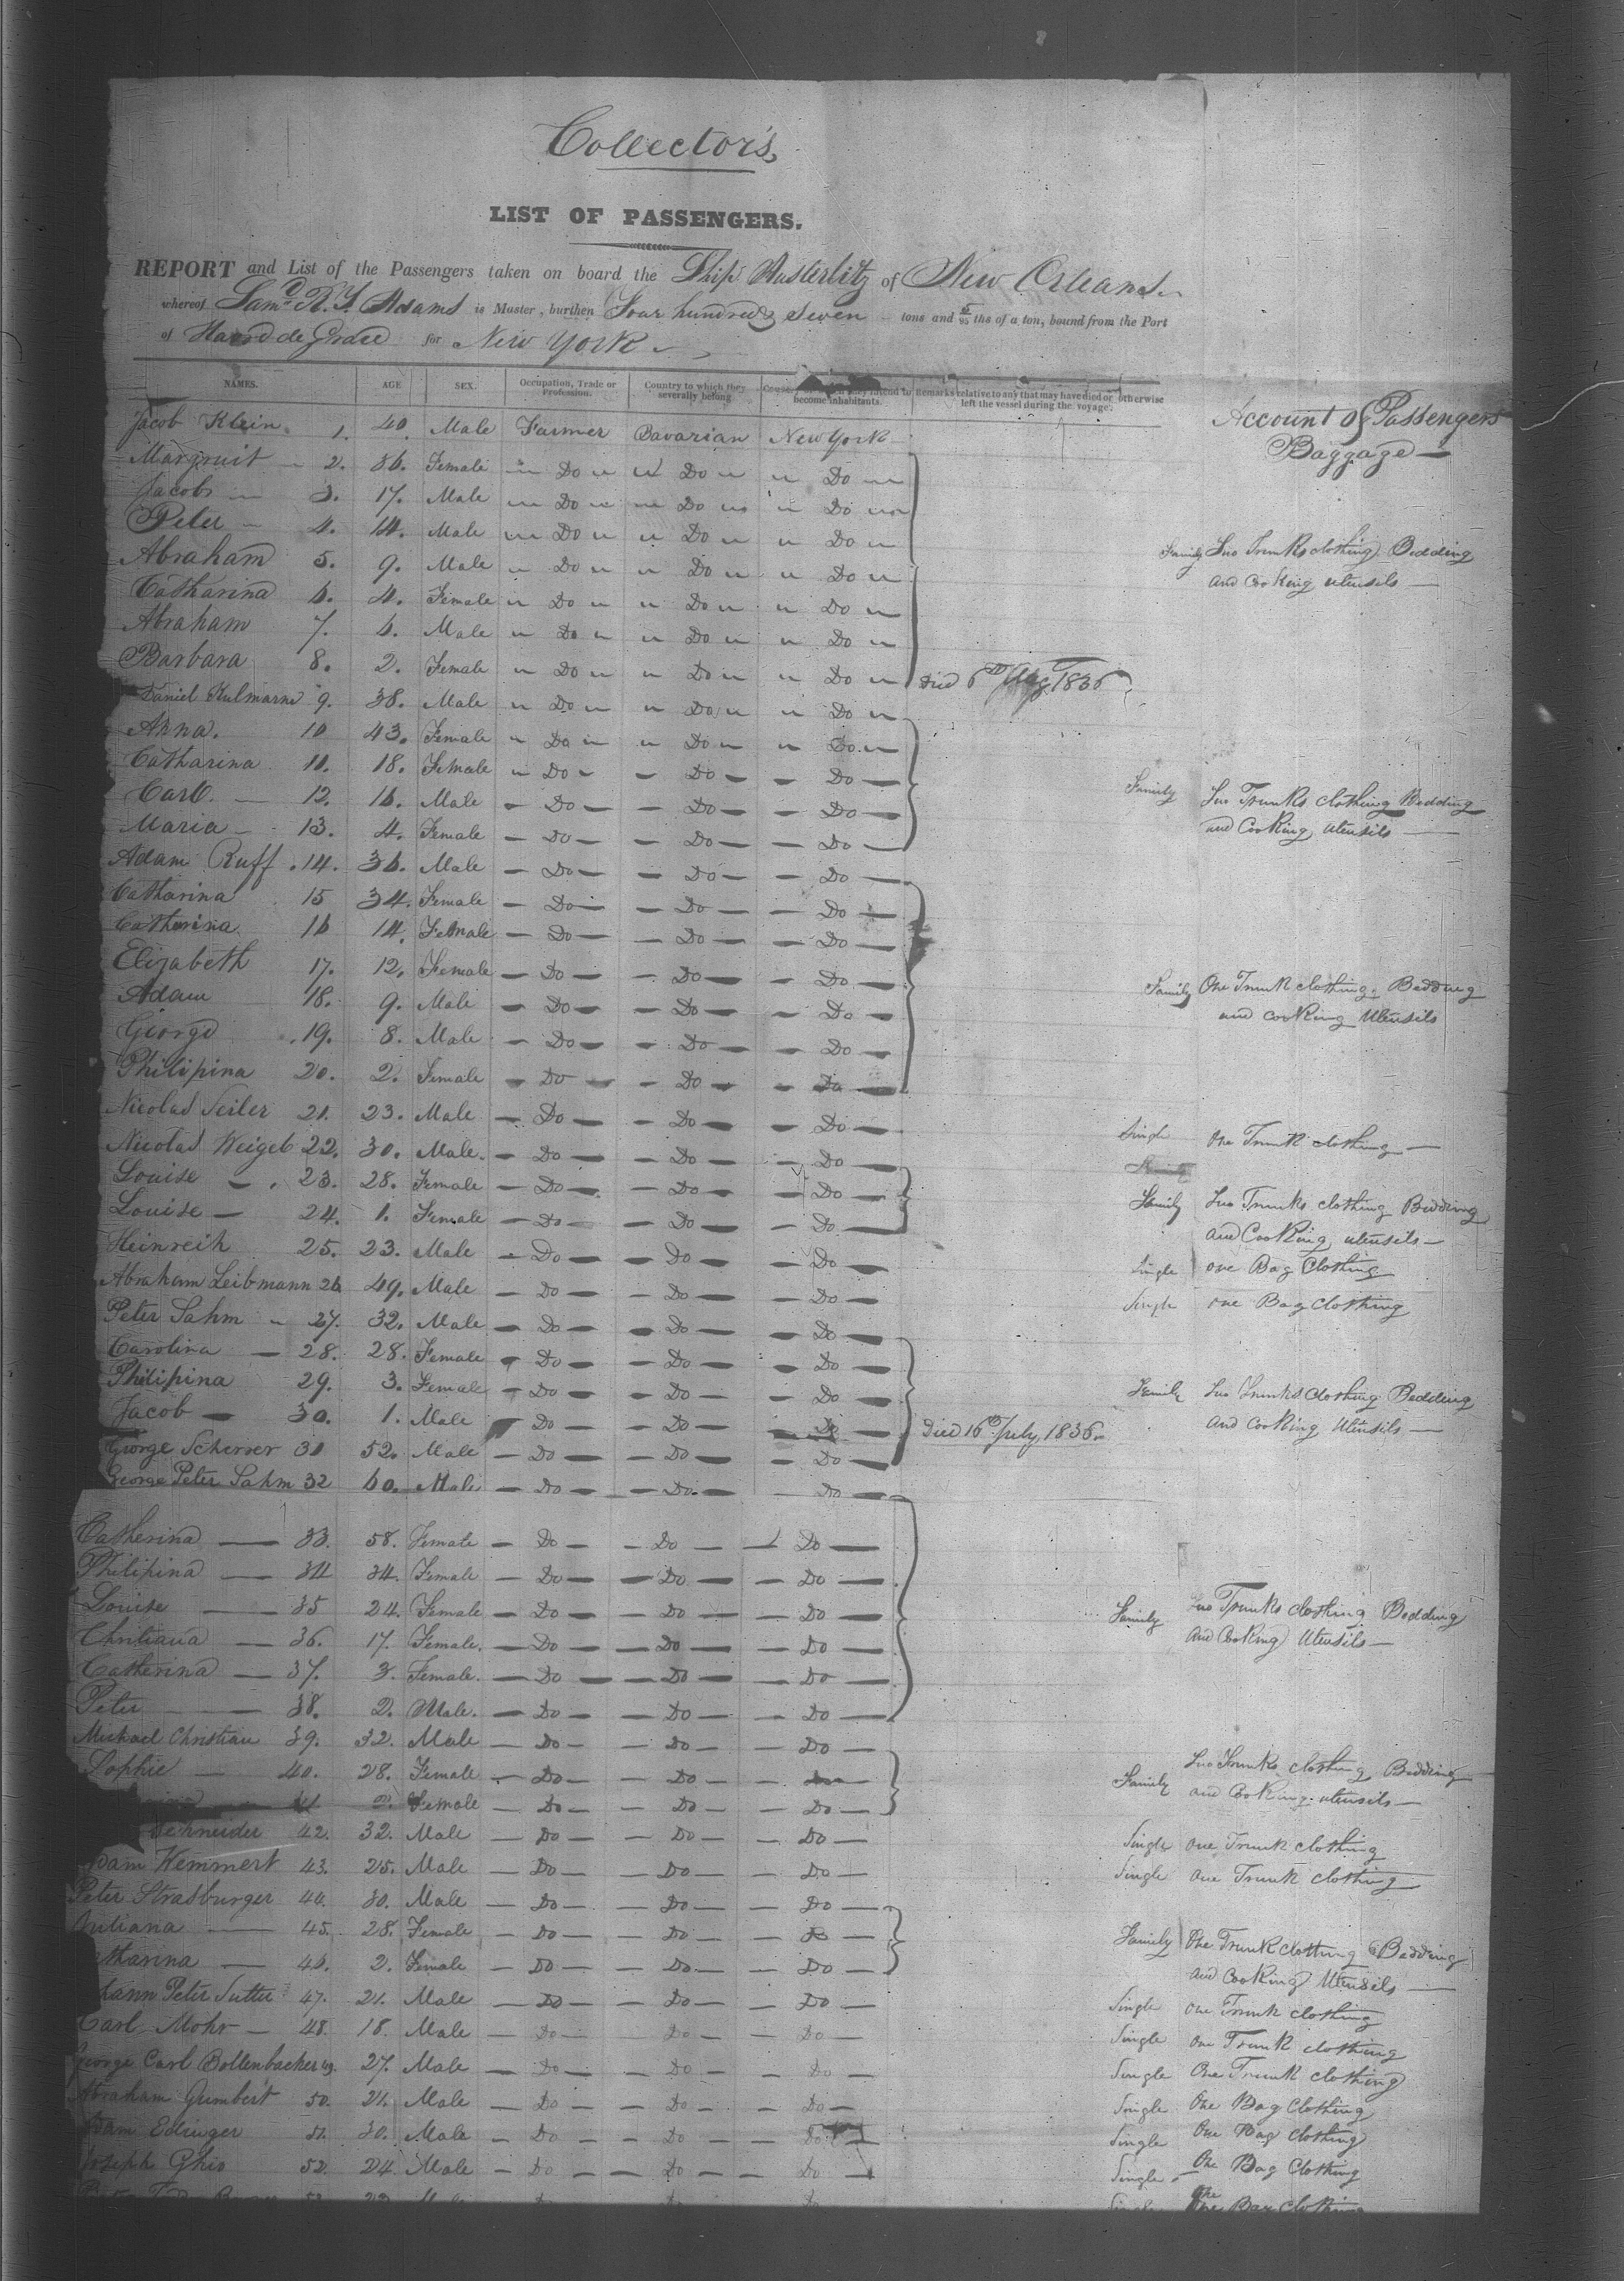 Collector's
LIST OF PASSENGERS.
REPORT and List of the Passengers taken on board the Ship Austerlitz of New Orleans
whereof Sam.^l R. Y. Adams is Master, burthen Four hundred & seven tons and /95 ths of a ton, bound from the Port
of Havre de Grace for New York
NAMES. AGE SEX. Occupation, Trade or Profession. Country to which they severally belong become inhabitants. Remarks relative to any that may have died or otherwise left the vessel during the voyage.
Account of Passengers
Baggage
Jacob Klein 1. 40. Male Farmer Bavarian New York
Margruit 2. 36. Female " Do " " Do " " Do "
Jacob 3. 17. Male " Do " " Do " " Do "
Peter 4. 14. Male " Do " " Do " " Do " Family Two Trunks clothing Bedding
and cooking utensils
Abraham 5. 9. Male " Do " " Do " " Do "
Catharina 6. 4. Female " Do " " Do " " Do "
Abraham 7. 6. Male " Do " " Do " " Do "
Barbara 8. 2. Female " Do " " Do " " Do " Died 6th Aug 1836
Daniel Kulmann 9. 38. Male " Do " " Do " " Do "
Anna. 10 43. Female " Do " " Do " " Do "
Catharina 11. 18. Female " Do " — Do — — Do —
Carl. — 12. 16. Male — Do — — Do — — Do — Family Two Trunks clothing Bedding
and Cooking utensils
Maria — 13. 4. Female — Do — — Do — — Do —
Adam Ruff. 14. 36. Male — Do — — Do — — Do —
Catharina 15 34. Female — Do — — Do — — Do —
Catharina 16 14. Female — Do — — Do — — Do —
Elizabeth 17. 12. Female — Do — — Do — — Do —
Adam 18. 9. Male — Do — — Do — — Do — Family One Trunk clothing Bedding
and cooking Utensils
George 19. 8. Male — Do — — Do — — Do —
Philipina 20. 2. Female — Do — — Do — — Do —
Nicolas Seiler 21. 23. Male — Do — — Do — — Do — Single One Trunk clothing —
Nicolas Weigel 22. 30. Male. — Do — — Do — — Do —
Louise — 23. 28. Female — Do — — Do — — Do — Family Two Trunks clothing Bedding
and Cooking utensils —
Louise — 24. 1. Female — Do — — Do — — Do —
Heinreih 25. 23. Male — Do — — Do — — Do — Single one Bag Clothing
Abraham Leibmann 26 49. Male — Do — — Do — — Do — Single one Bag Clothing
Peter Sahm 27. 32. Male — Do — — Do — — Do —
Carolina — 28. 28. Female — Do — — Do — — Do —
Philipina 29. 3. Female — Do — — Do — — Do — Family Two Trunks clothing Bedding
and cooking Utensils —
Jacob — 30. 1. Male — Do — — Do — — Do — Died 16th July, 1836.
George Scherrer 31 52. Male — Do — — Do — — Do —
George Peter Sahm 32 60. Male — Do — — Do. — — Do —
Catherina — 33. 58. Female — Do — — Do — — Do —
Philipina — 34 34. Female — Do — — Do — — Do —
Louise — 35 24. Female — Do — — Do — — Do — Family Two Trunks Clothing Bedding
and Cooking Utensils —
Christiana — 36. 17. Female. — Do — — Do — — Do —
Catherina — 37. 3. Female. — Do — — Do — — Do —
Peter — 38. 2. Male. — Do — — Do — — Do —
Michael Christian 39. 32. Male — Do — — Do — — Do —
Sophie — 40. 28. Female — Do — — Do — — Do — Family Two Trunks clothing Bedding
and Cooking utensils —
41 2. Female — Do — — Do — — Do —
Schneider 42. 32. Male — Do — — Do — — Do — Single one Trunk clothing
dam Hemmert 43. 25. Male — Do — — Do — — Do — Single one Trunk clothing
Peter Strasburger 44. 30. Male — Do — — Do — — Do —
Juliana — 45. 28. Female — Do — — Do — — Do — Family One Trunk clothing Bedding
and Cooking Utensils —
atharina — 46. 2. Female — Do — — Do — — Do —
hann Peter Sutter 47. 21. Male — Do — — Do — — Do — Single one Trunk clothing
Carl Mohr — 48. 18. Male — Do — — Do — — Do — Single one Trunk clothing
George Carl Bollenbacher 49. 27. Male — Do — — Do — — Do — Single One Trunk clothing
Abraham Gumbert 50. 21. Male — Do — — Do — — Do — Single One Bag Clothing
dam Edinger 51. 30. Male — Do — — Do — — Do — Single One Bag clothing
Joseph Ghio 52. 24. Male — Do — — Do — — Do — Single. — One Bag Clothing
One Bag clothing